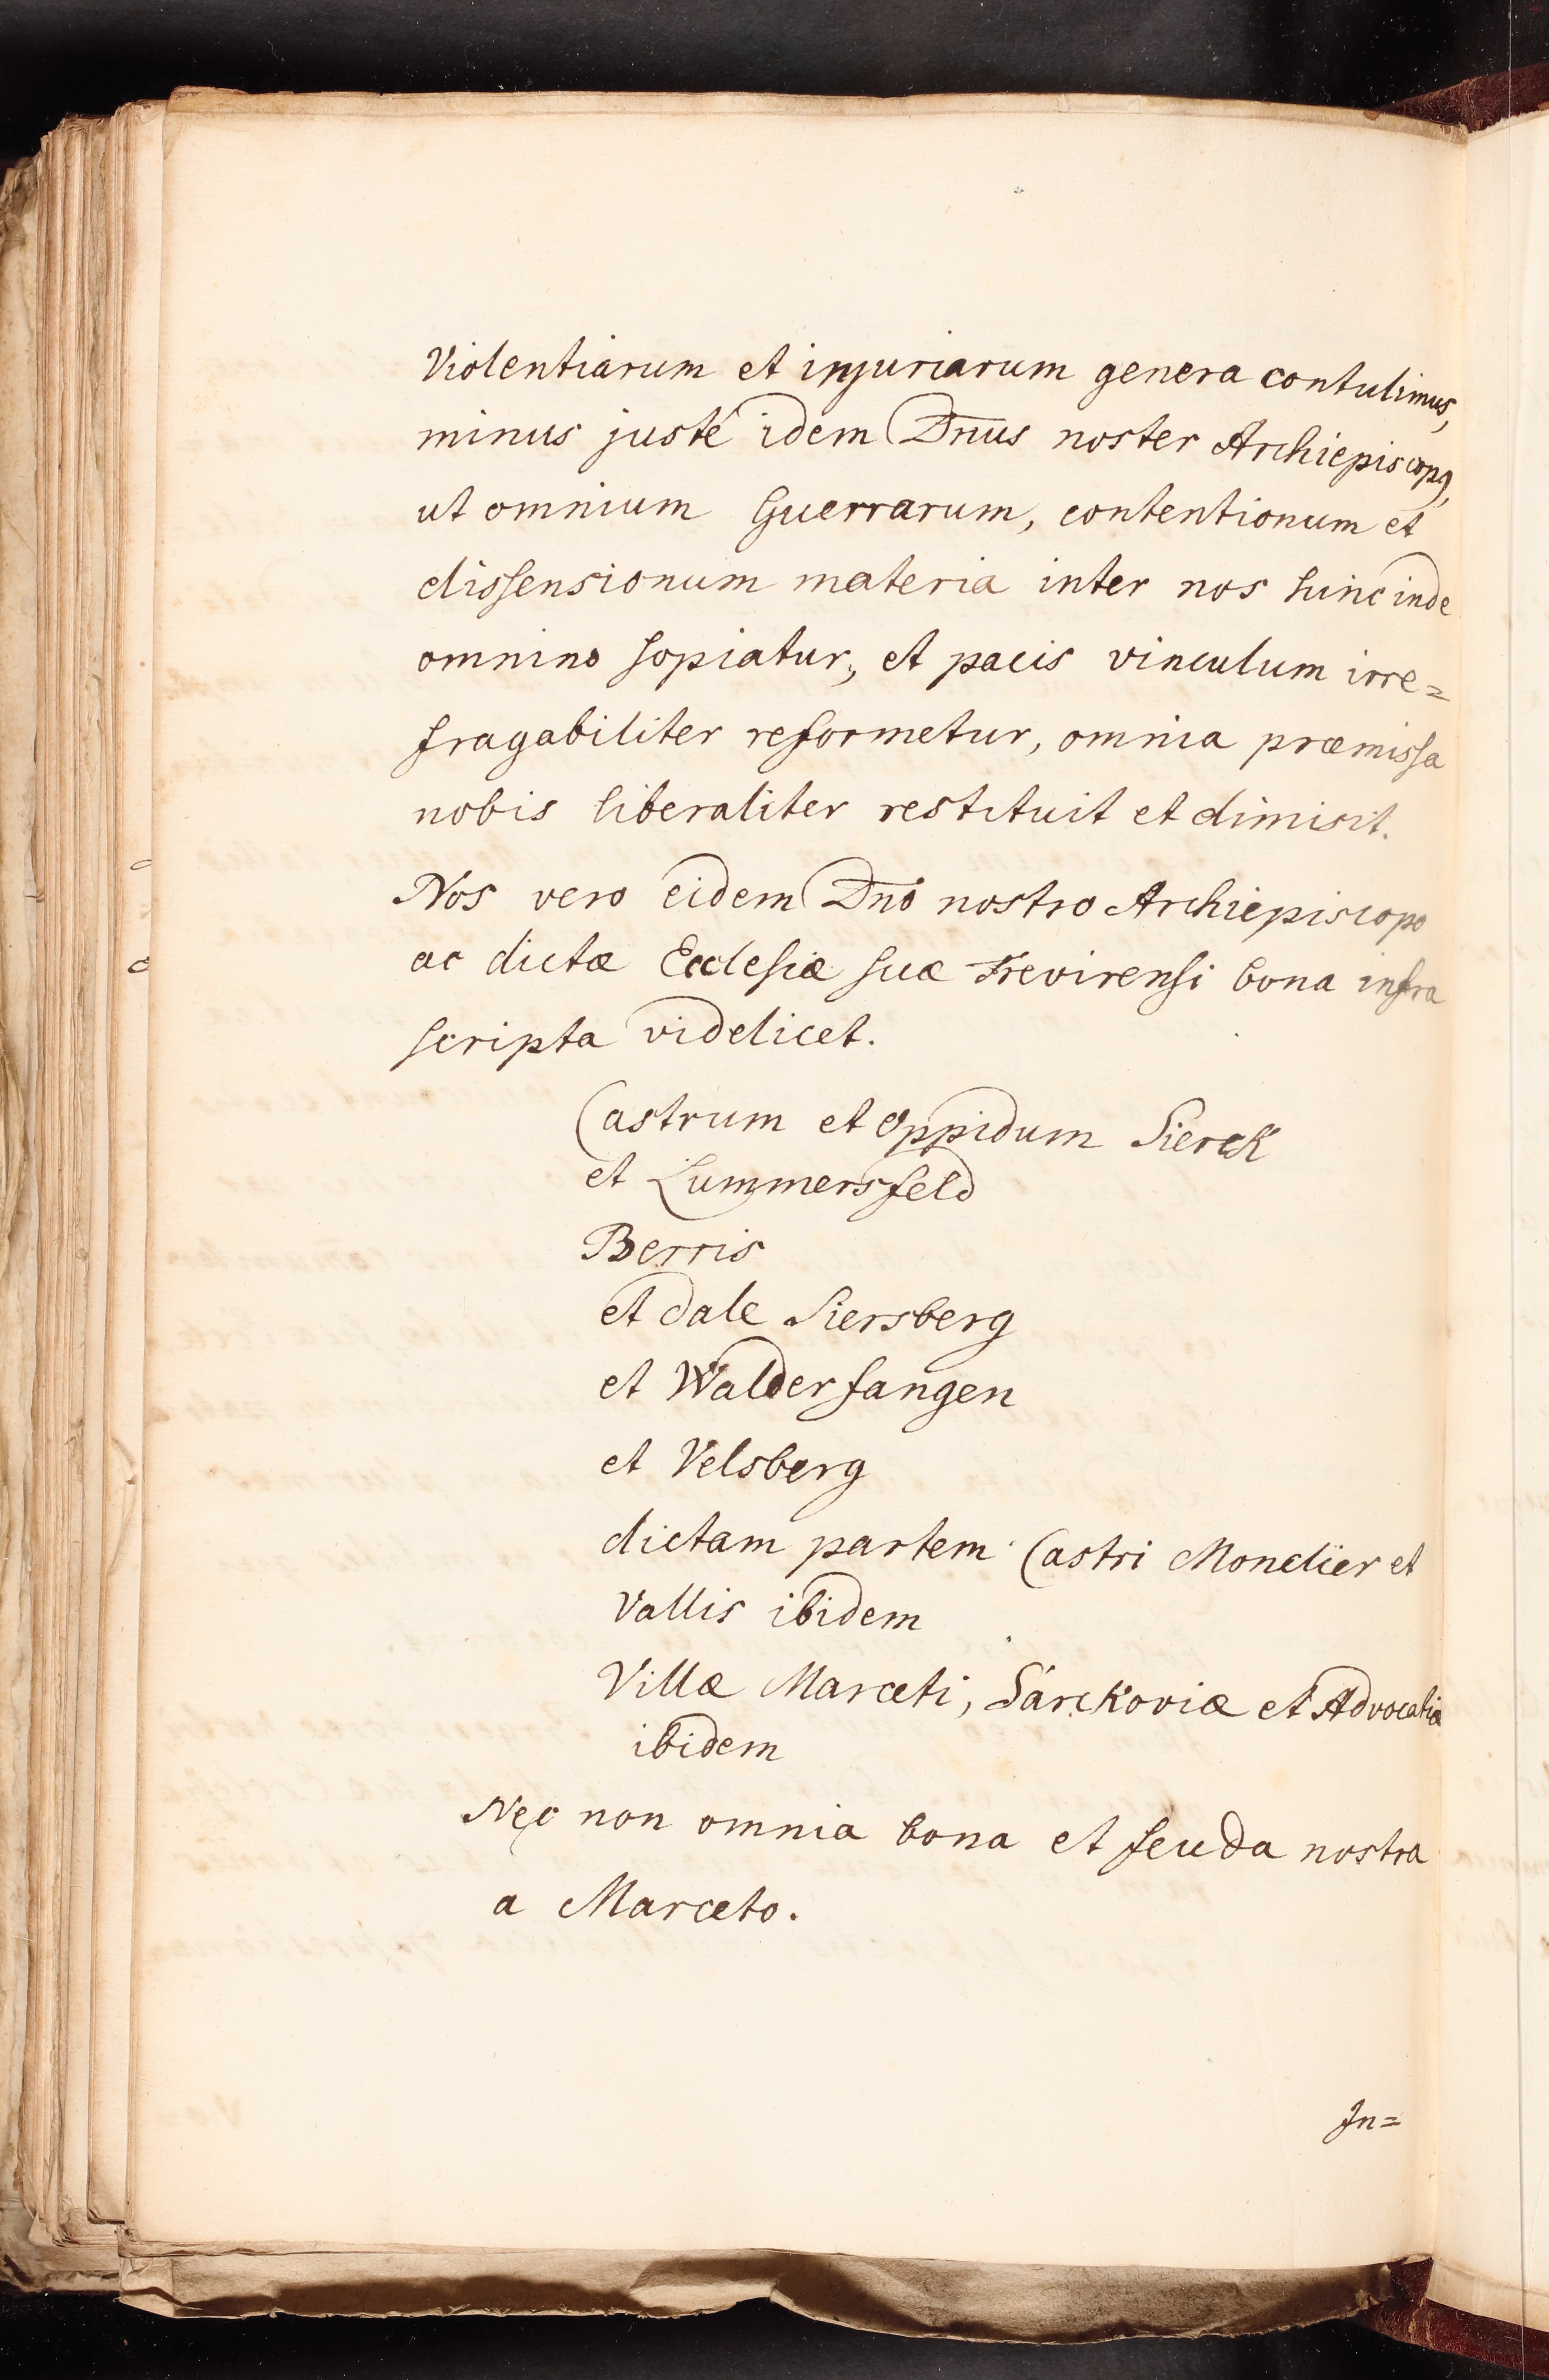 Violentiarum et injuriarum genera contulimus,
minus justé idem Dn̄us noster Archiepiscopꝰ,
ut omnium Guerrarum, contentionum et
dissensionum materia inter nos hinc inde
omnino sopiatur, et pacis vinculum irre=
fragabiliter reformetur, omnia præmissa
nobis liberaliter restituit et dimisit.
Nos vero eidem Dn̄o nostro Archiepiscopo
ac dictæ Ecclesiæ suæ Trevirensi bona infra
scripta videlicet.
Castrum et Oppidum Sierck
et Lummersfeld
Berris
et dale Siersberg
et Walderfangen
et Velsberg
dictam partem Castri Monclier et
Vallis ibidem
Villæ Marceti, Sarckoviæ et Advocatiæ
ibidem
Nec non omnia bona et feuda nostra
a Marceto.
In=